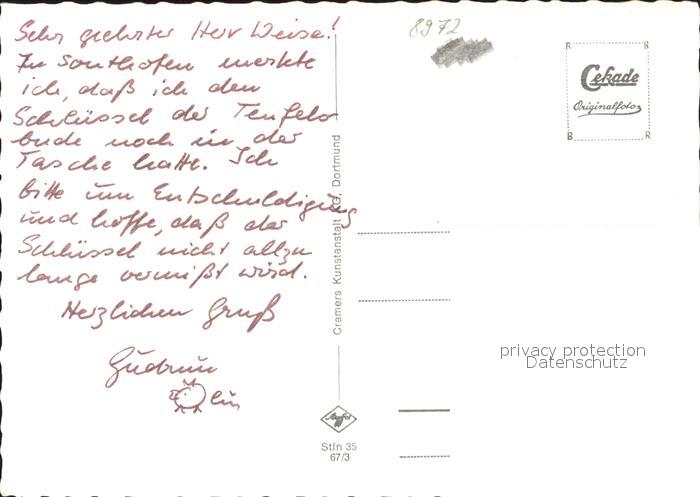 Sehr geehrter Herr Weise!
In Sonthofen merkte
ich, daß ich den
Schlüssel der Teufels
bude noch in der
Tasche hatte. Ich
bitte um Entschuldigung
und hoffe, daß der
Schlüssel nicht allzu
lange vermißt wird.
Herzlichen Gruß
Gudrun
lin
8972
Cekade
Originalfoto
B R
B R
Cramers Kunstanstalt KG, Dortmund
privacy protection
Datenschutz
Agfa
Stfn 35
67/3